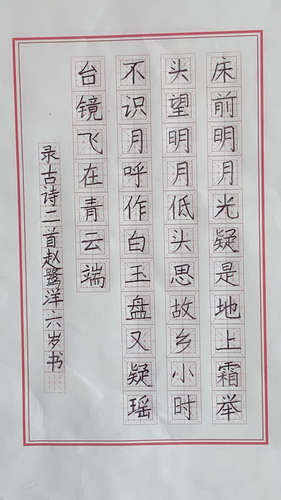 床前明月光疑是地上霜举
头望明月低头思故乡小时
不识月呼作白玉盘又疑瑶
台镜飞在青云端
录古诗二首赵鹭洋六岁书